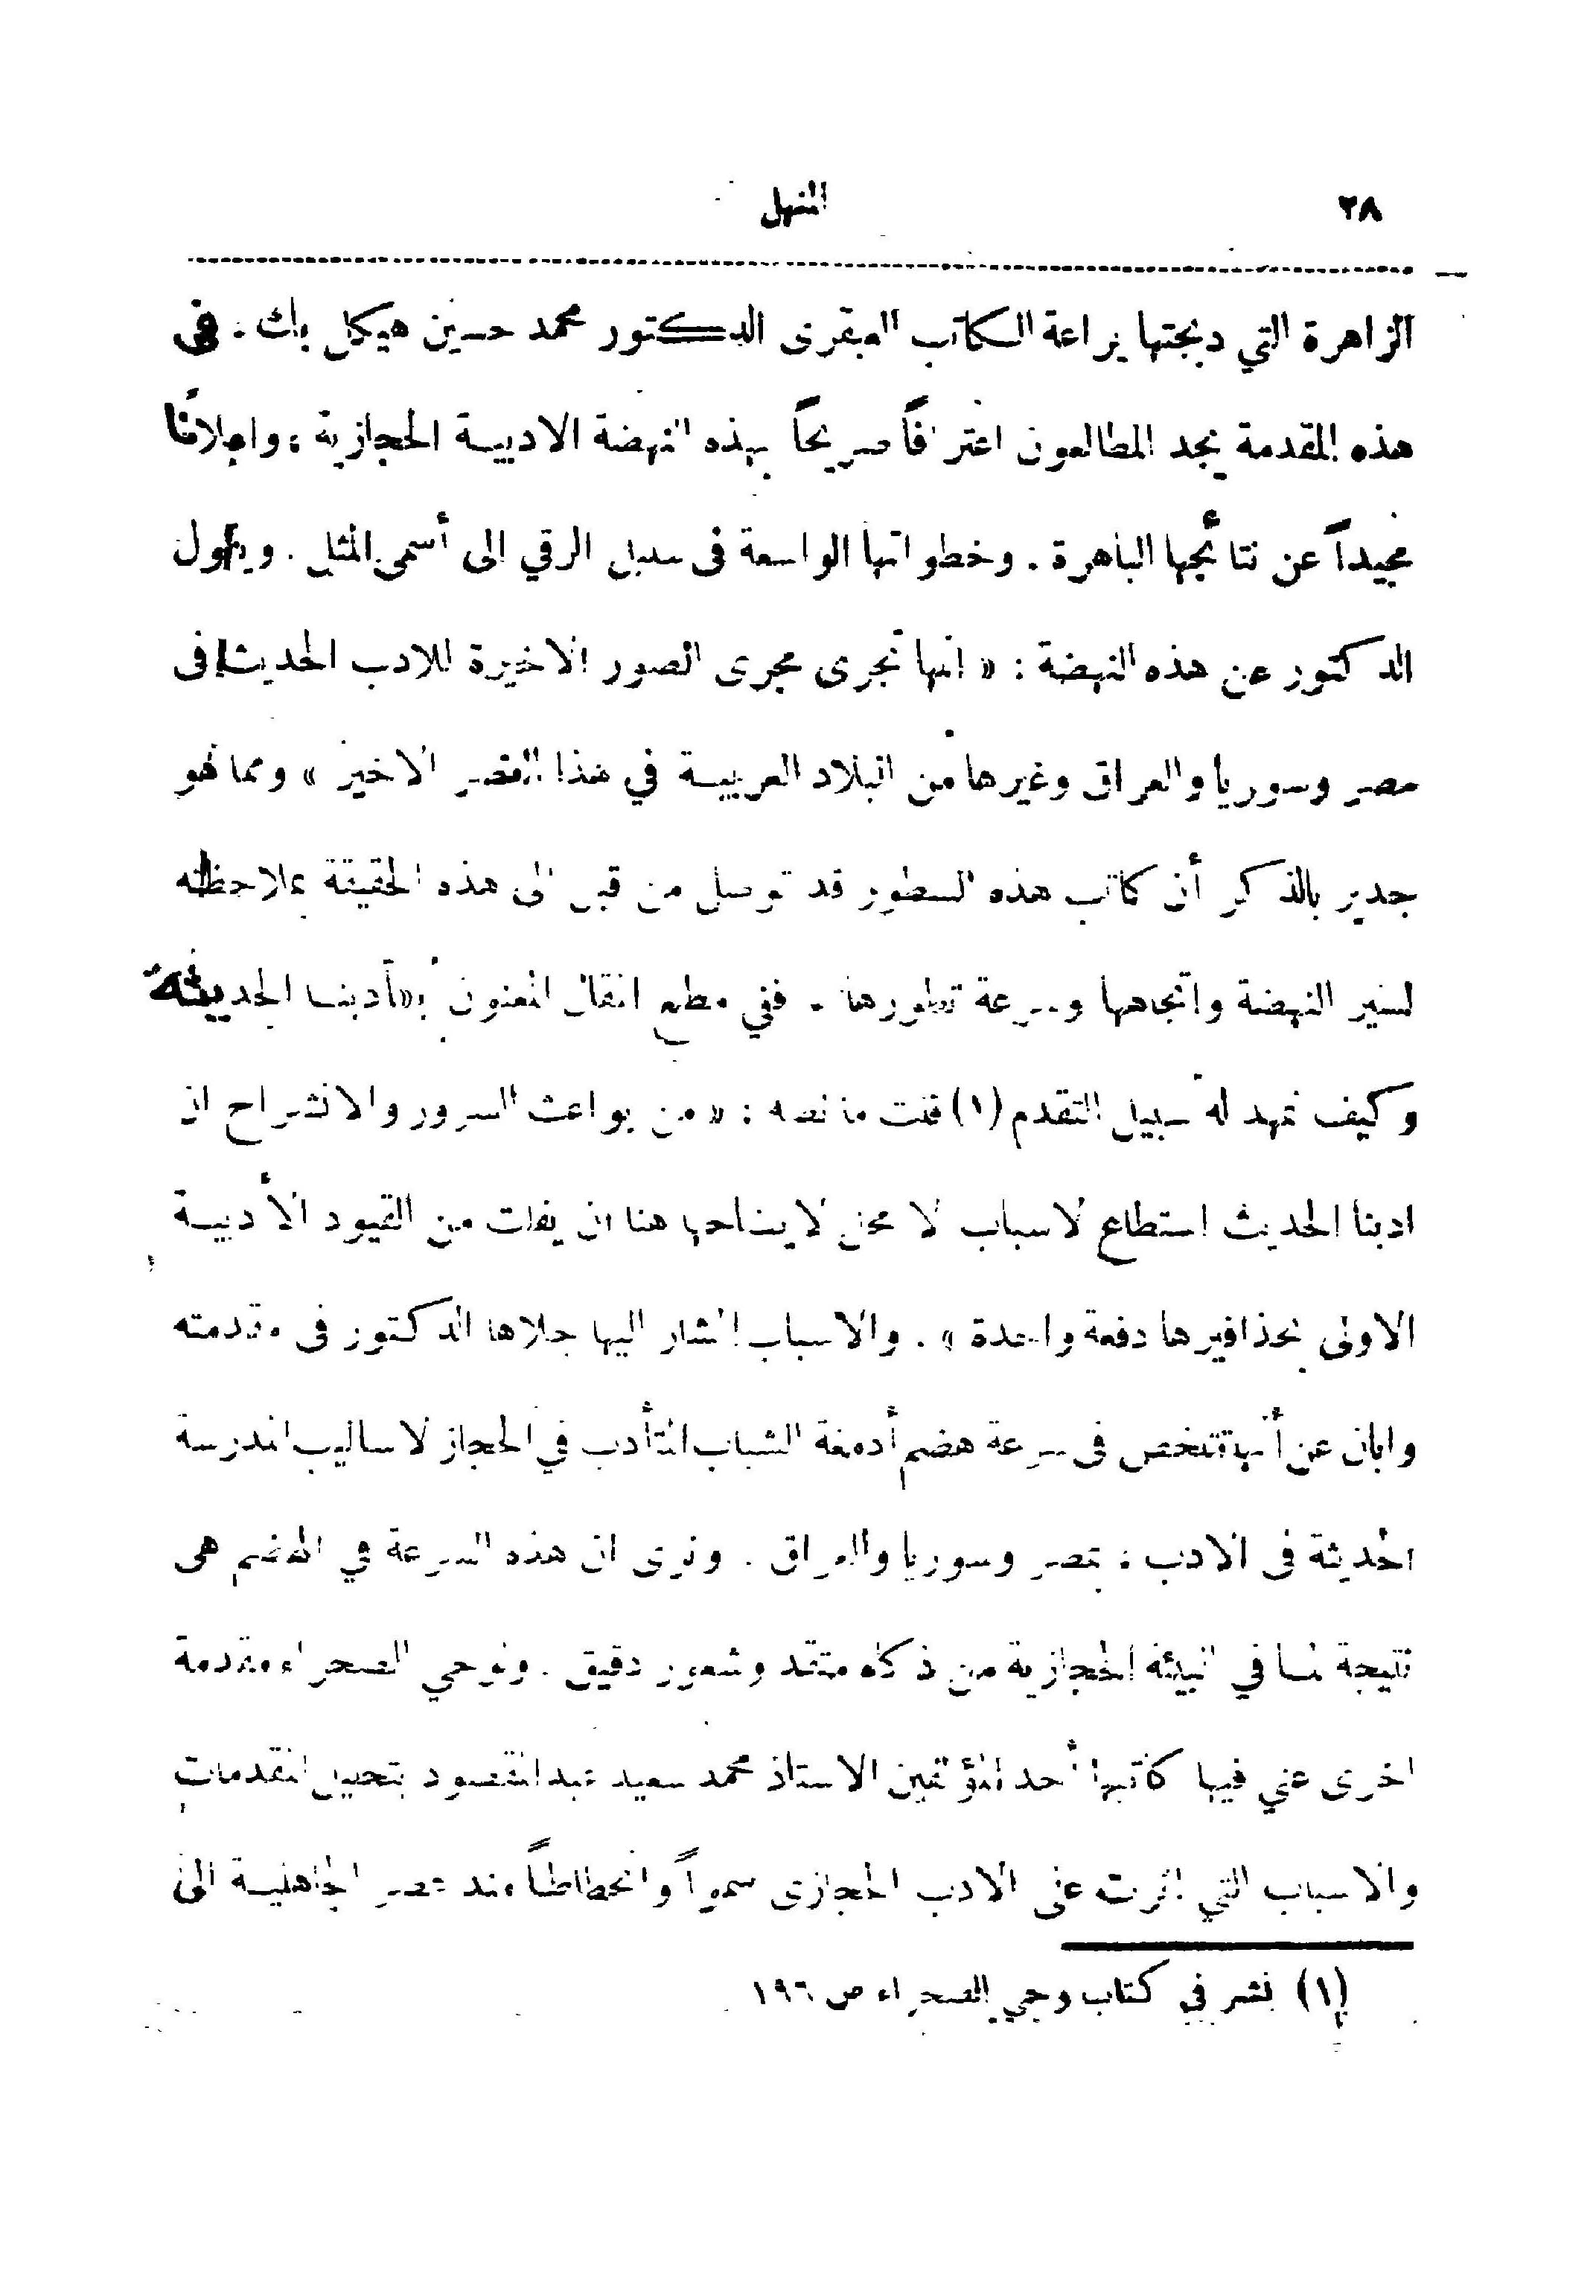 ٢٨
المنهل
الزاهرة التي دبجتها يراعة الكاتب العبقرى الدكتور محمد حسين هيكل بك . فى
هذه المقدمة يجد المطالعون اعترافاً صريحاً بهذه النهضة الادبية الحجازية ، واعلانا
مجيداً عن نتائجها الباهرة . وخطواتها الواسعة فى سبيل الرقي الى أسمى المثل . ويقول
الدكتور عن هذه النهضة : « انها تجرى مجرى الصور الاخيرة للادب الحديث فى
مصر وسوريا والعراق وغيرها من البلاد العربية في هذا العصر الاخير » ومما هو
جدير بالذكر أن كاتب هذه السطور قد توصل من قبل الى هذه الحقيقة بملاحظته
لسير النهضة واتجاهها وسرعة تطورها . ففي مطلع المقال المعنون بـ«أدبنا الحديث
وكيف نمهد له سبيل التقدم (١) قلت ما نصه : « من بواعث السرور والانشراح ان
ادبنا الحديث استطاع لاسباب لا محل لايضاحها هنا ان يفلت من القيود الأدبية
الاولى بحذافيرها دفعة واحدة » . والاسباب المشار اليها جلاها الدكتور فى مقدمته
وابان عن أنها تتلخص فى سرعة هضم أدمغة الشباب المتأدب في الحجاز لاساليب المدرسة
الحديثة فى الادب ، بمصر وسوريا والعراق . ونرى ان هذه السرعة في الهضم هى
نتيجة لما في البيئة الحجازية من ذكاء متقد وشعور دقيق . ولوحي الصحراء مقدمة
اخرى عني فيها كاتبها أحد المؤلفين الاستاذ محمد سعيد عبد المقصود بتحليل المقدمات
والاسباب التي اثرت على الادب الحجازى سمواً وانحطاطاً منذ عصر الجاهلية الى
(١) نشر في كتاب وحي الصحراء ص ١٩٦